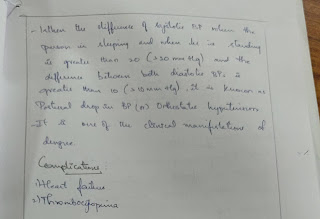 - When the difference of systolic BP when the
person is sleeping and when he is standing
is greater than 20 (>20 mm Hg) and the
difference between both diastolic BPs is
greater than 10 (>10 mm Hg). It is known as
Postural drop in BP (or) Orthostatic hypotension.
- It is one of the clinical manifestations of
dengue.
Complications :
1) Heart failure
2) Thrombocytopenia